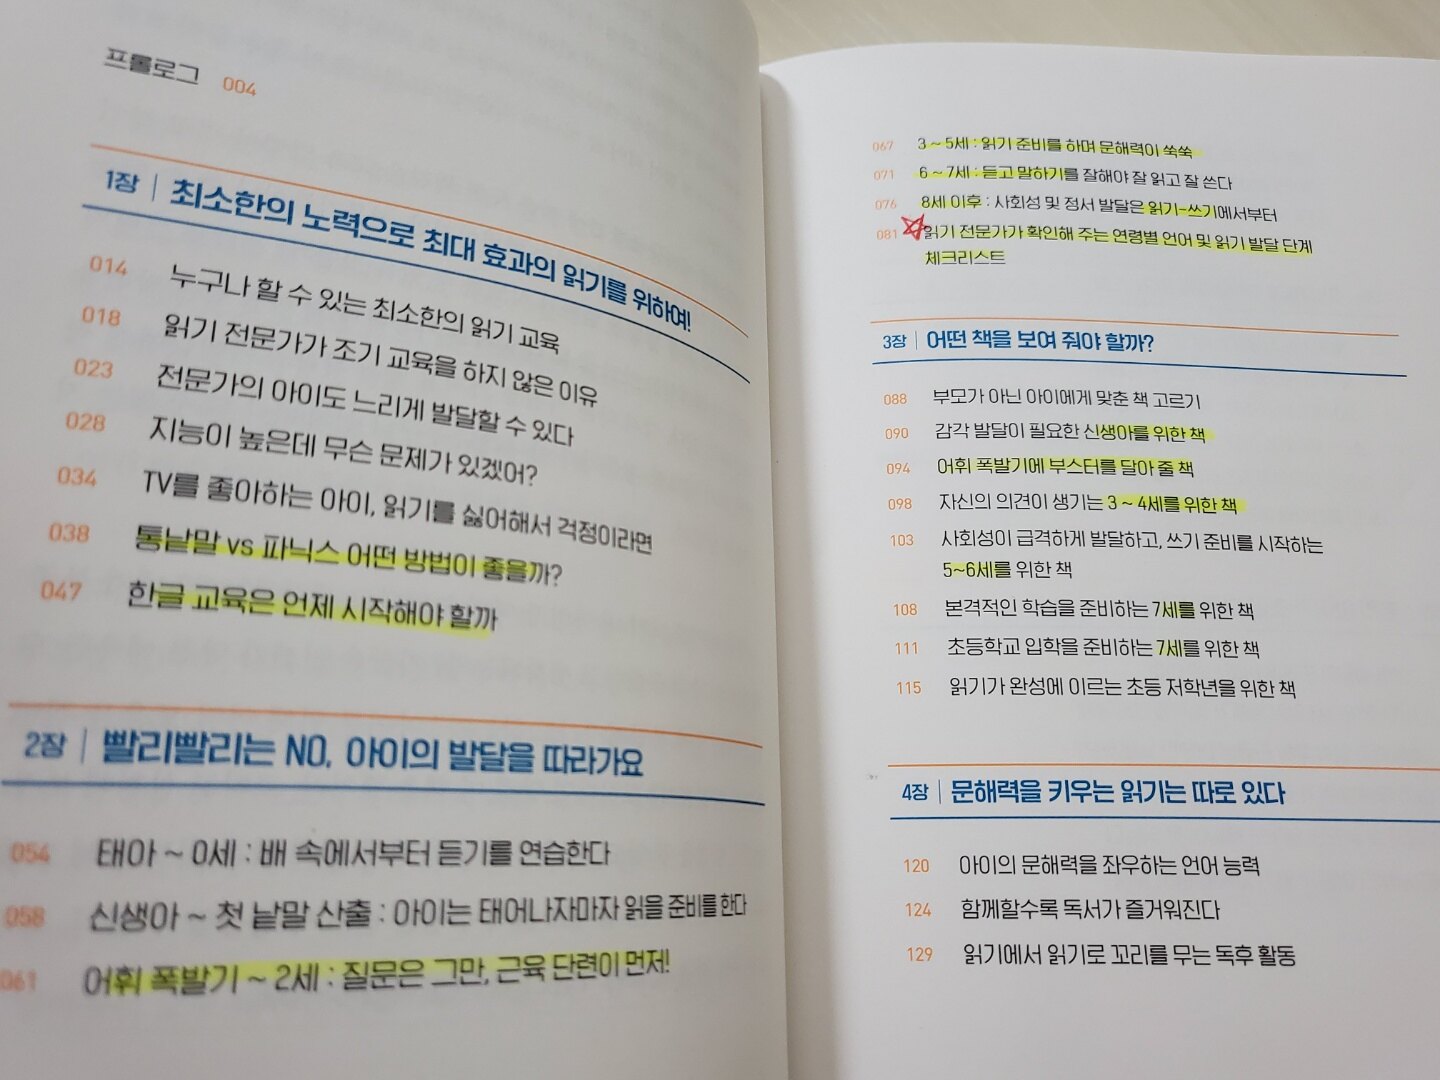 프롤로그 004
1장 | 최소한의 노력으로 최대 효과의 읽기를 위하여!
014 누구나 할 수 있는 최소한의 읽기 교육
018 읽기 전문가가 조기 교육을 하지 않은 이유
023 전문가의 아이도 느리게 발달할 수 있다
028 지능이 높은데 무슨 문제가 있겠어?
034 TV를 좋아하는 아이, 읽기를 싫어해서 걱정이라면
038 통낱말 vs 파닉스 어떤 방법이 좋을까?
047 한글 교육은 언제 시작해야 할까
2장 | 빨리빨리는 NO, 아이의 발달을 따라가요
054 태아 ~ 0세 : 배 속에서부터 듣기를 연습한다
058 신생아 ~ 첫 낱말 산출 : 아이는 태어나자마자 읽을 준비를 한다
061 어휘 폭발기 ~ 2세 : 질문은 그만, 근육 단련이 먼저!
067 3 ~ 5세 : 읽기 준비를 하며 문해력이 쑥쑥
071 6 ~ 7세 : 듣고 말하기를 잘해야 잘 읽고 잘 쓴다
076 8세 이후 : 사회성 및 정서 발달은 읽기-쓰기에서부터
081 읽기 전문가가 확인해 주는 연령별 언어 및 읽기 발달 단계
체크리스트
3장 | 어떤 책을 보여 줘야 할까?
088 부모가 아닌 아이에게 맞춘 책 고르기
090 감각 발달이 필요한 신생아를 위한 책
094 어휘 폭발기에 부스터를 달아 줄 책
098 자신의 의견이 생기는 3 ~ 4세를 위한 책
103 사회성이 급격하게 발달하고, 쓰기 준비를 시작하는
5~6세를 위한 책
108 본격적인 학습을 준비하는 7세를 위한 책
111 초등학교 입학을 준비하는 7세를 위한 책
115 읽기가 완성에 이르는 초등 저학년을 위한 책
4장 | 문해력을 키우는 읽기는 따로 있다
120 아이의 문해력을 좌우하는 언어 능력
124 함께할수록 독서가 즐거워진다
129 읽기에서 읽기로 꼬리를 무는 독후 활동